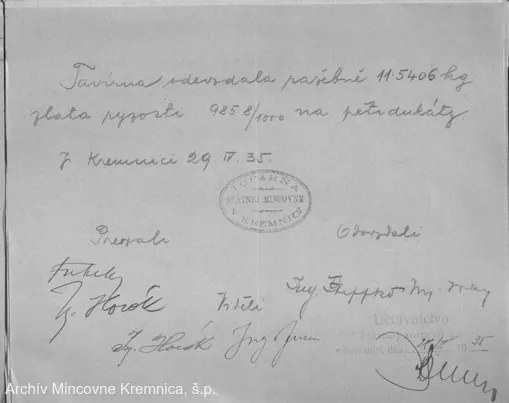 Tavírna odevzdala ražebně 11·5406 kg
zlata ryzosti 985 8/1000 na pětidukáty.
V Kremnici 29 IV. 35.
STÁTNEJ MINCOVNE
V KREMNICI
Převzali
Odevzdali
Horák
Ing.
Viděli
Horák
Ing.
Účtovníctvo
v Kremnici, dňa
19 35
Archív Mincovne Kremnica, š.p.